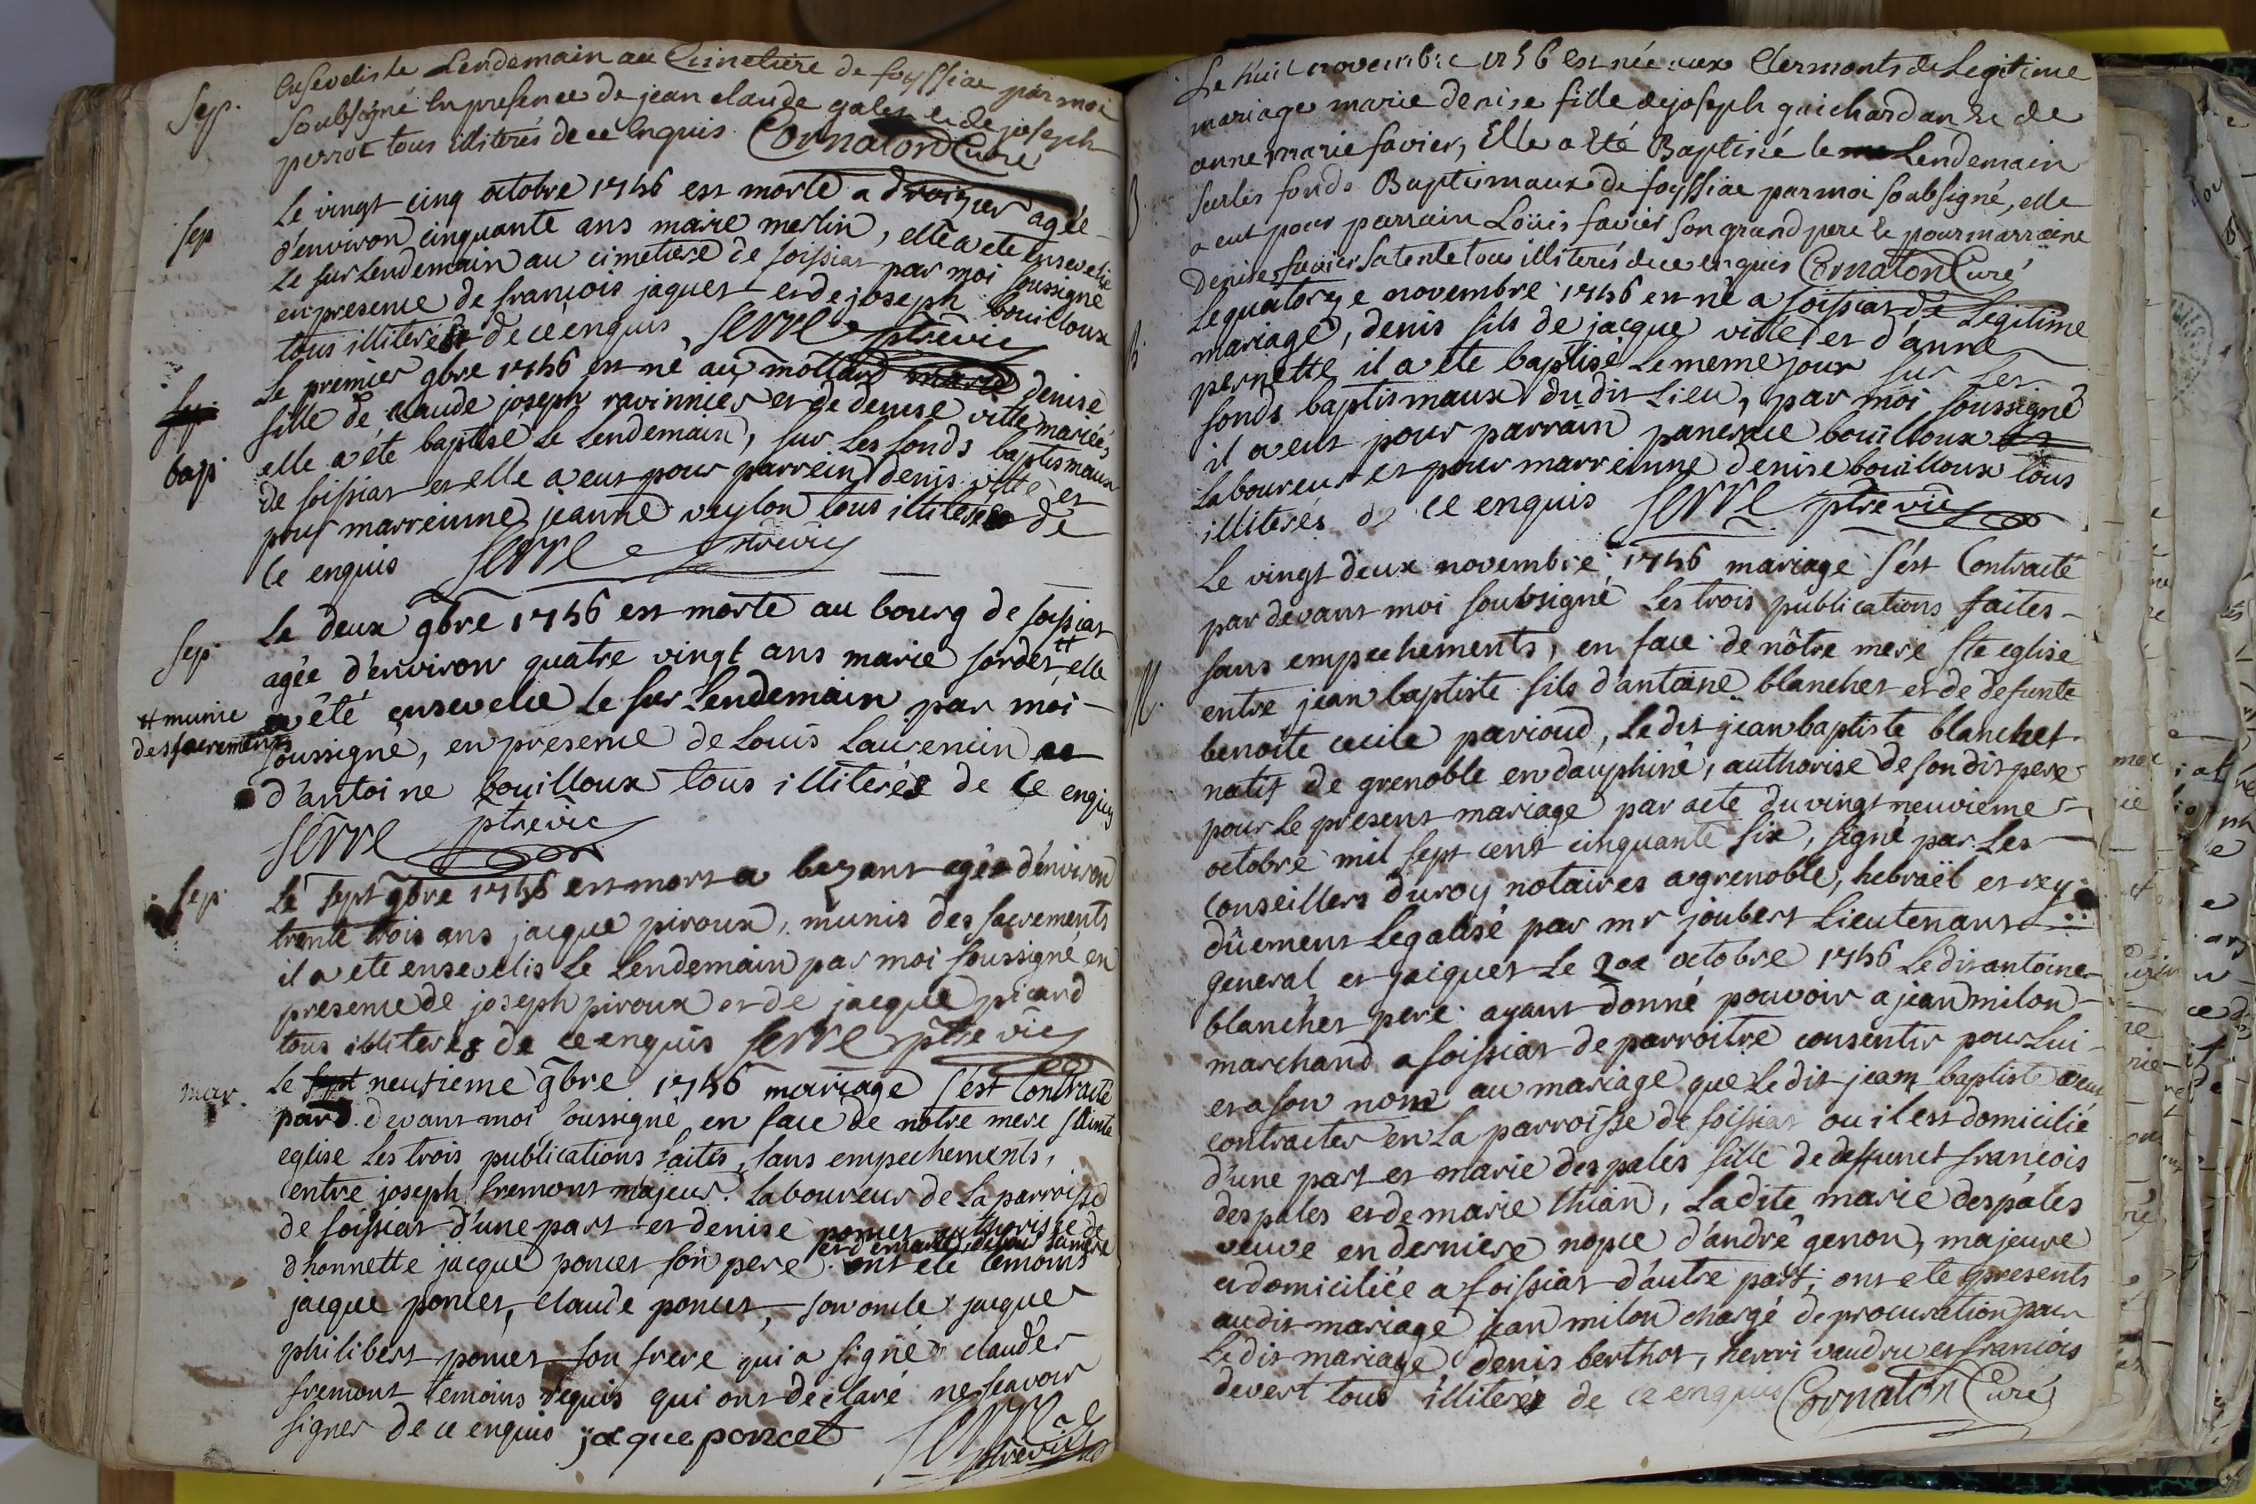 Sep.
Ensevelis le Lendemain au Cimetiere de foyssiac par moi
Soubsigné En presence de jean claude galet et de joseph
perrot tous illiterés de ce Enquis Cornaton Curé
Sep
Le vingt cinq octobre 1756 est morte a agée
d'environ cinquante ans marie merlin, elle a été ensevelie
Le surlendemain au cimetiere de soissiat par moi soussigné
en presence de françois jaquet et de joseph bouilloux
tous illiterés de ce enquis Serre ptre vic
bap
Le premier 9bre 1756 est né au mollard marie denise
fille de claude joseph ravinnier et de denise ville mariés,
elle a été baptisé Le Lendemain, sur Les fonds baptismaux
de soissiat et elle a eut pour parrein denis ville et
pour marreinne jeanne veylon tous illiterés de
ce enquis Serre ptre vic
Sep.
Le deux 9bre 1756 est morte au bourg de soissiat
agée d'environ quatre vingt ans marie sordet, # elle
# munie
des sacrements
a été ensevelie Le sur Lendemain par moi
soussigné, en presence de Louis Laurencin et
d'antoine bouilloux tous illiterés de ce enquis
Serre ptre vic
Sep.
Le sept 9bre 1756 est mort a bezant agé d'environ
trente trois ans jacque piroux, munis des sacrements
il a été ensevelis Le Lendemain par moi soussigné, en
presence de joseph piroux et de jacque picard
tous illiterés de ce enquis Serre ptre vic
mar.
Le sept neufieme 9bre 1756 mariage s'est Contracté
par devant moi soussigné en face de notre mere sainte
eglise Les trois publications faites, sans empechements,
entre joseph fremont majeur Laboureur de La parroisse
de soissiat d'une part et denise poncet authorisée de
d'honnette jacque poncet son pere ont été temoins
jacque poncet, claude poncet, son oncle jacque
philibert poncet son frere qui a signé claude
fremont temoins requis qui ont declaré ne scavoir
signer de ce enquis jacque poncet Serre
ptre vic
Le huit novembre 1756 est née aux Clermonts de Legitime
mariage marie denise fille de joseph guichardan et de
anne marie favier, Elle a Eté Baptisé le Lendemain
B.
sur les fonds Baptismaux de foyssiac par moi soubsigné, elle
a eut pour parrain Loüis favier son grand pere et pour marraine
Denise favier sa tente tous illiterés de ce enquis Cornaton Curé
B.
Le quatorze novembre 1756 est né a soissiat de Legitime
mariage, denis fils de jacque ville et d'anne
pernette il a été baptisé Le meme jour sur Les
fonds baptismaux du dit Lieu, par moi soussigné
il a eut pour parrain pancrace bouilloux
Laboureur et pour marreinne denise bouilloux tous
illiterés de ce enquis Serre ptre vic
Le vingt deux novembre 1756 mariage s'est Contracté
par devant moi soubsigné Les trois publications faites
sans empechements, en face de nôtre mere ste eglise
M.
entre jean baptiste fils d'antoine blanchet et de defunte
benoite cecile parioud, Le dit jean baptiste blanchet
natif de grenoble en dauphiné, authorisé de son dit pere
pour Le present mariage par acte du vingt neuvieme
octobre mil sept cent cinquante six, signé par Les
conseillers du roy notaires a grenoble, hebraël et rey
düement Legalisé par mr joubert Lieutenant
general et jaiquet Le 20e octobre 1756 Le dit antoine
blanchet pere ayant donné pouvoir a jean milon
marchand a soissiat de parroitre consentir pour Lui
et a son nom au mariage que Le dit jean baptiste veut
contracter en La parroisse de soissiat ou il est domicilié
d'une part et marie despales fille de deffunct francois
despales et de marie thian, La dite marie despâles
veuve en derniere nopce d'andré genon, majeure
et domiciliée a soissiat d'autre part; ont été presents
au dit mariage jean milon chargé de procuration pour
Le dit mariage denis berthot, henri vaudru et francois
devert tous illiterés de ce enquis Cornaton Curé